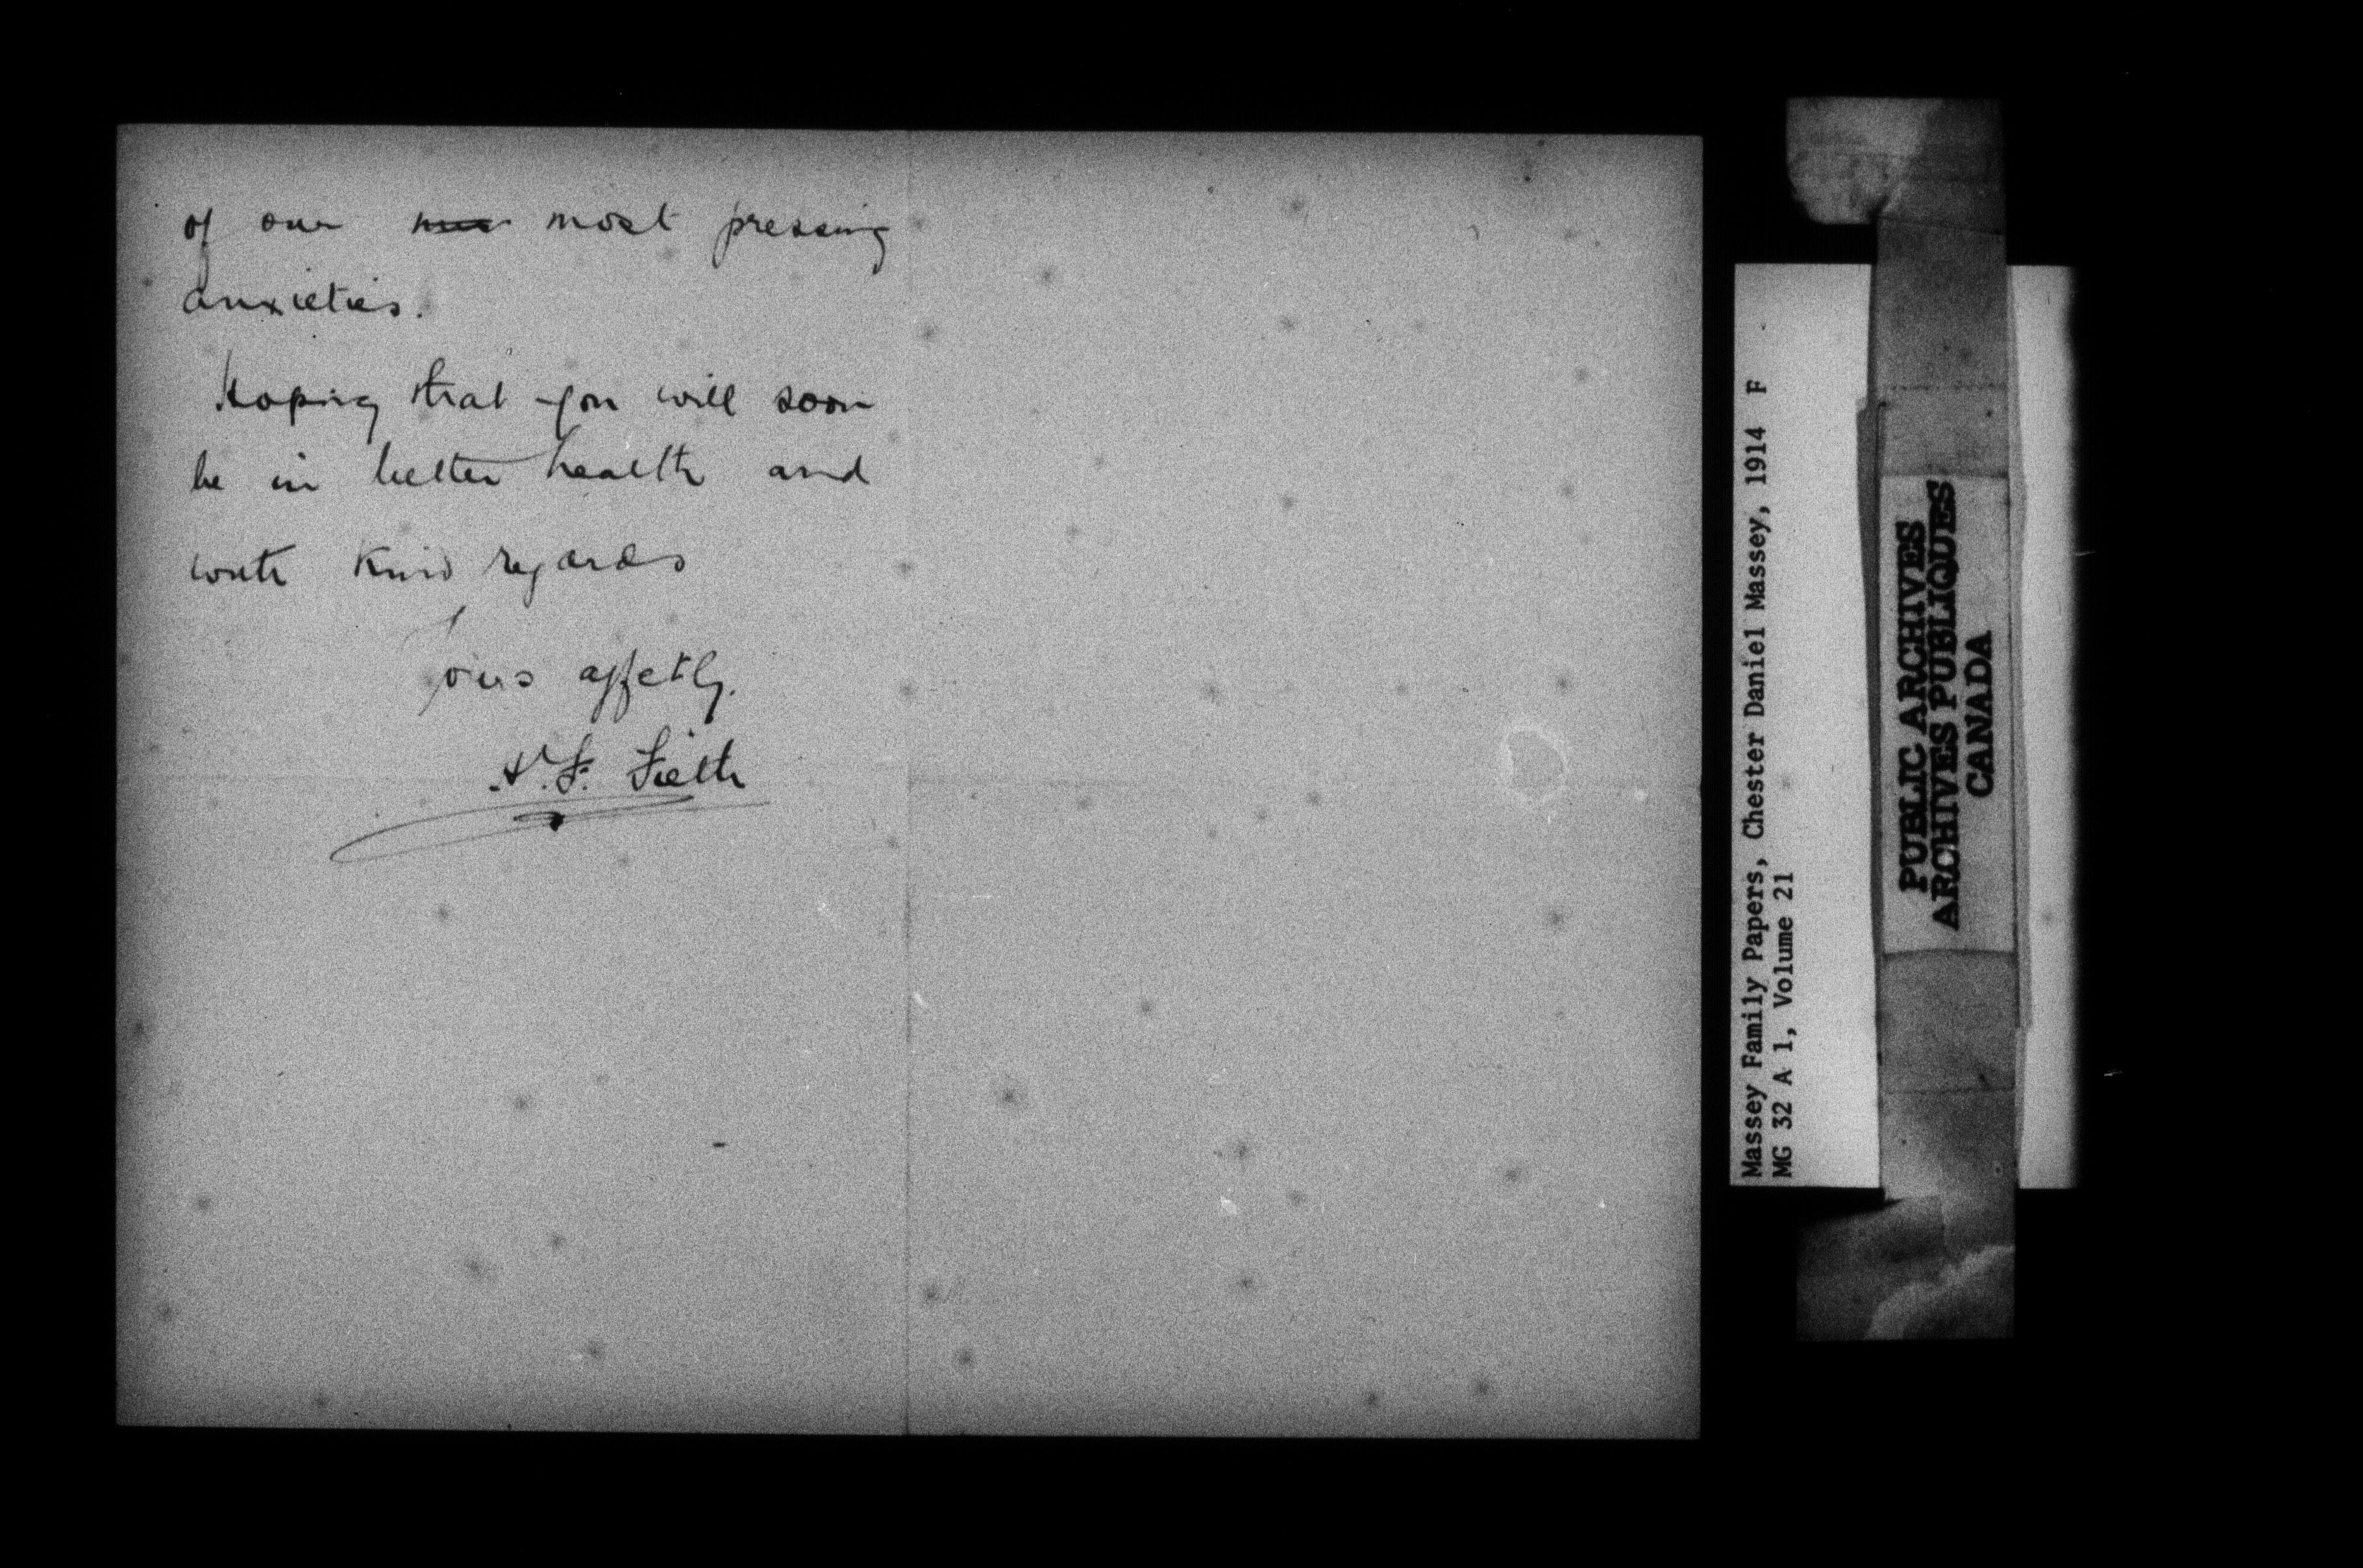 of our most pressing
anxieties.
Hoping that you will soon
be in better health and
with kind regards
Yours affectly.
Massey Family Papers, Chester Daniel Massey, 1914 F
MG 32 A 1, Volume 21
PUBLIC ARCHIVES
ARCHIVES PUBLIQUES
CANADA